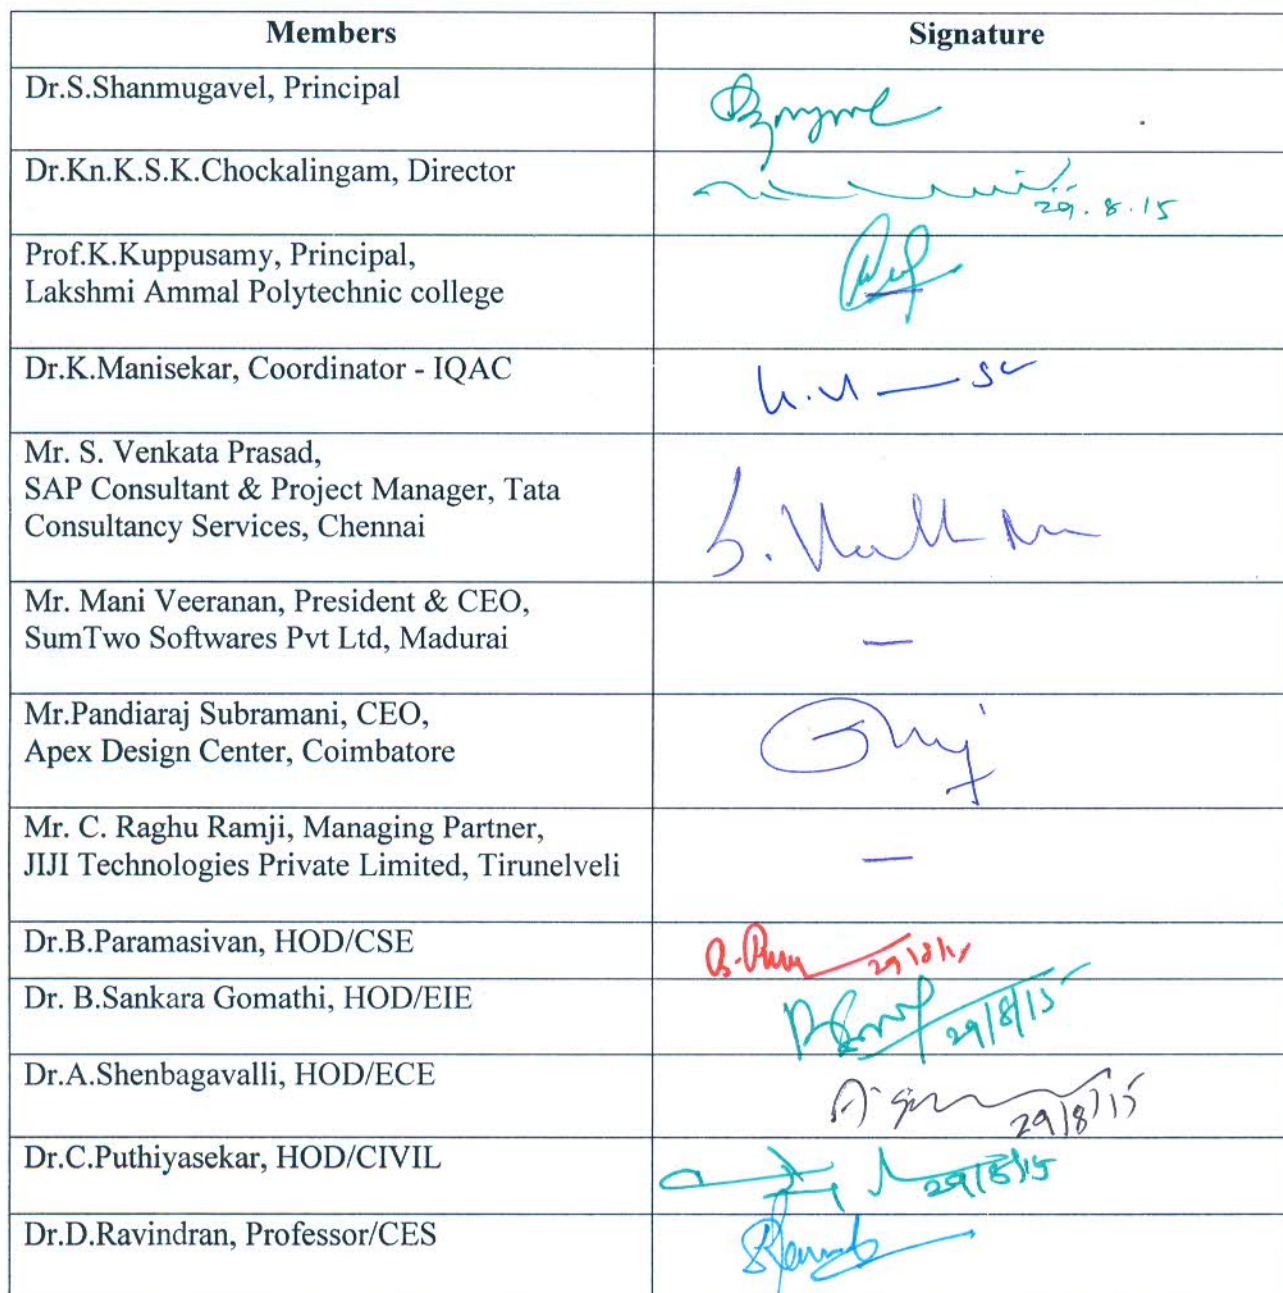 Members Signature
Dr.S.Shanmugavel, Principal
Dr.Kn.K.S.K.Chockalingam, Director
29.8.15
Prof.K.Kuppusamy, Principal,
Lakshmi Ammal Polytechnic college
Dr.K.Manisekar, Coordinator - IQAC
Mr. S. Venkata Prasad,
SAP Consultant & Project Manager, Tata
Consultancy Services, Chennai
Mr. Mani Veeranan, President & CEO,
SumTwo Softwares Pvt Ltd, Madurai
—
Mr.Pandiaraj Subramani, CEO,
Apex Design Center, Coimbatore
Mr. C. Raghu Ramji, Managing Partner,
JIJI Technologies Private Limited, Tirunelveli
—
Dr.B.Paramasivan, HOD/CSE
Dr. B.Sankara Gomathi, HOD/EIE 29/8/15
Dr.A.Shenbagavalli, HOD/ECE
29/8/15
Dr.C.Puthiyasekar, HOD/CIVIL 29/8/15
Dr.D.Ravindran, Professor/CES